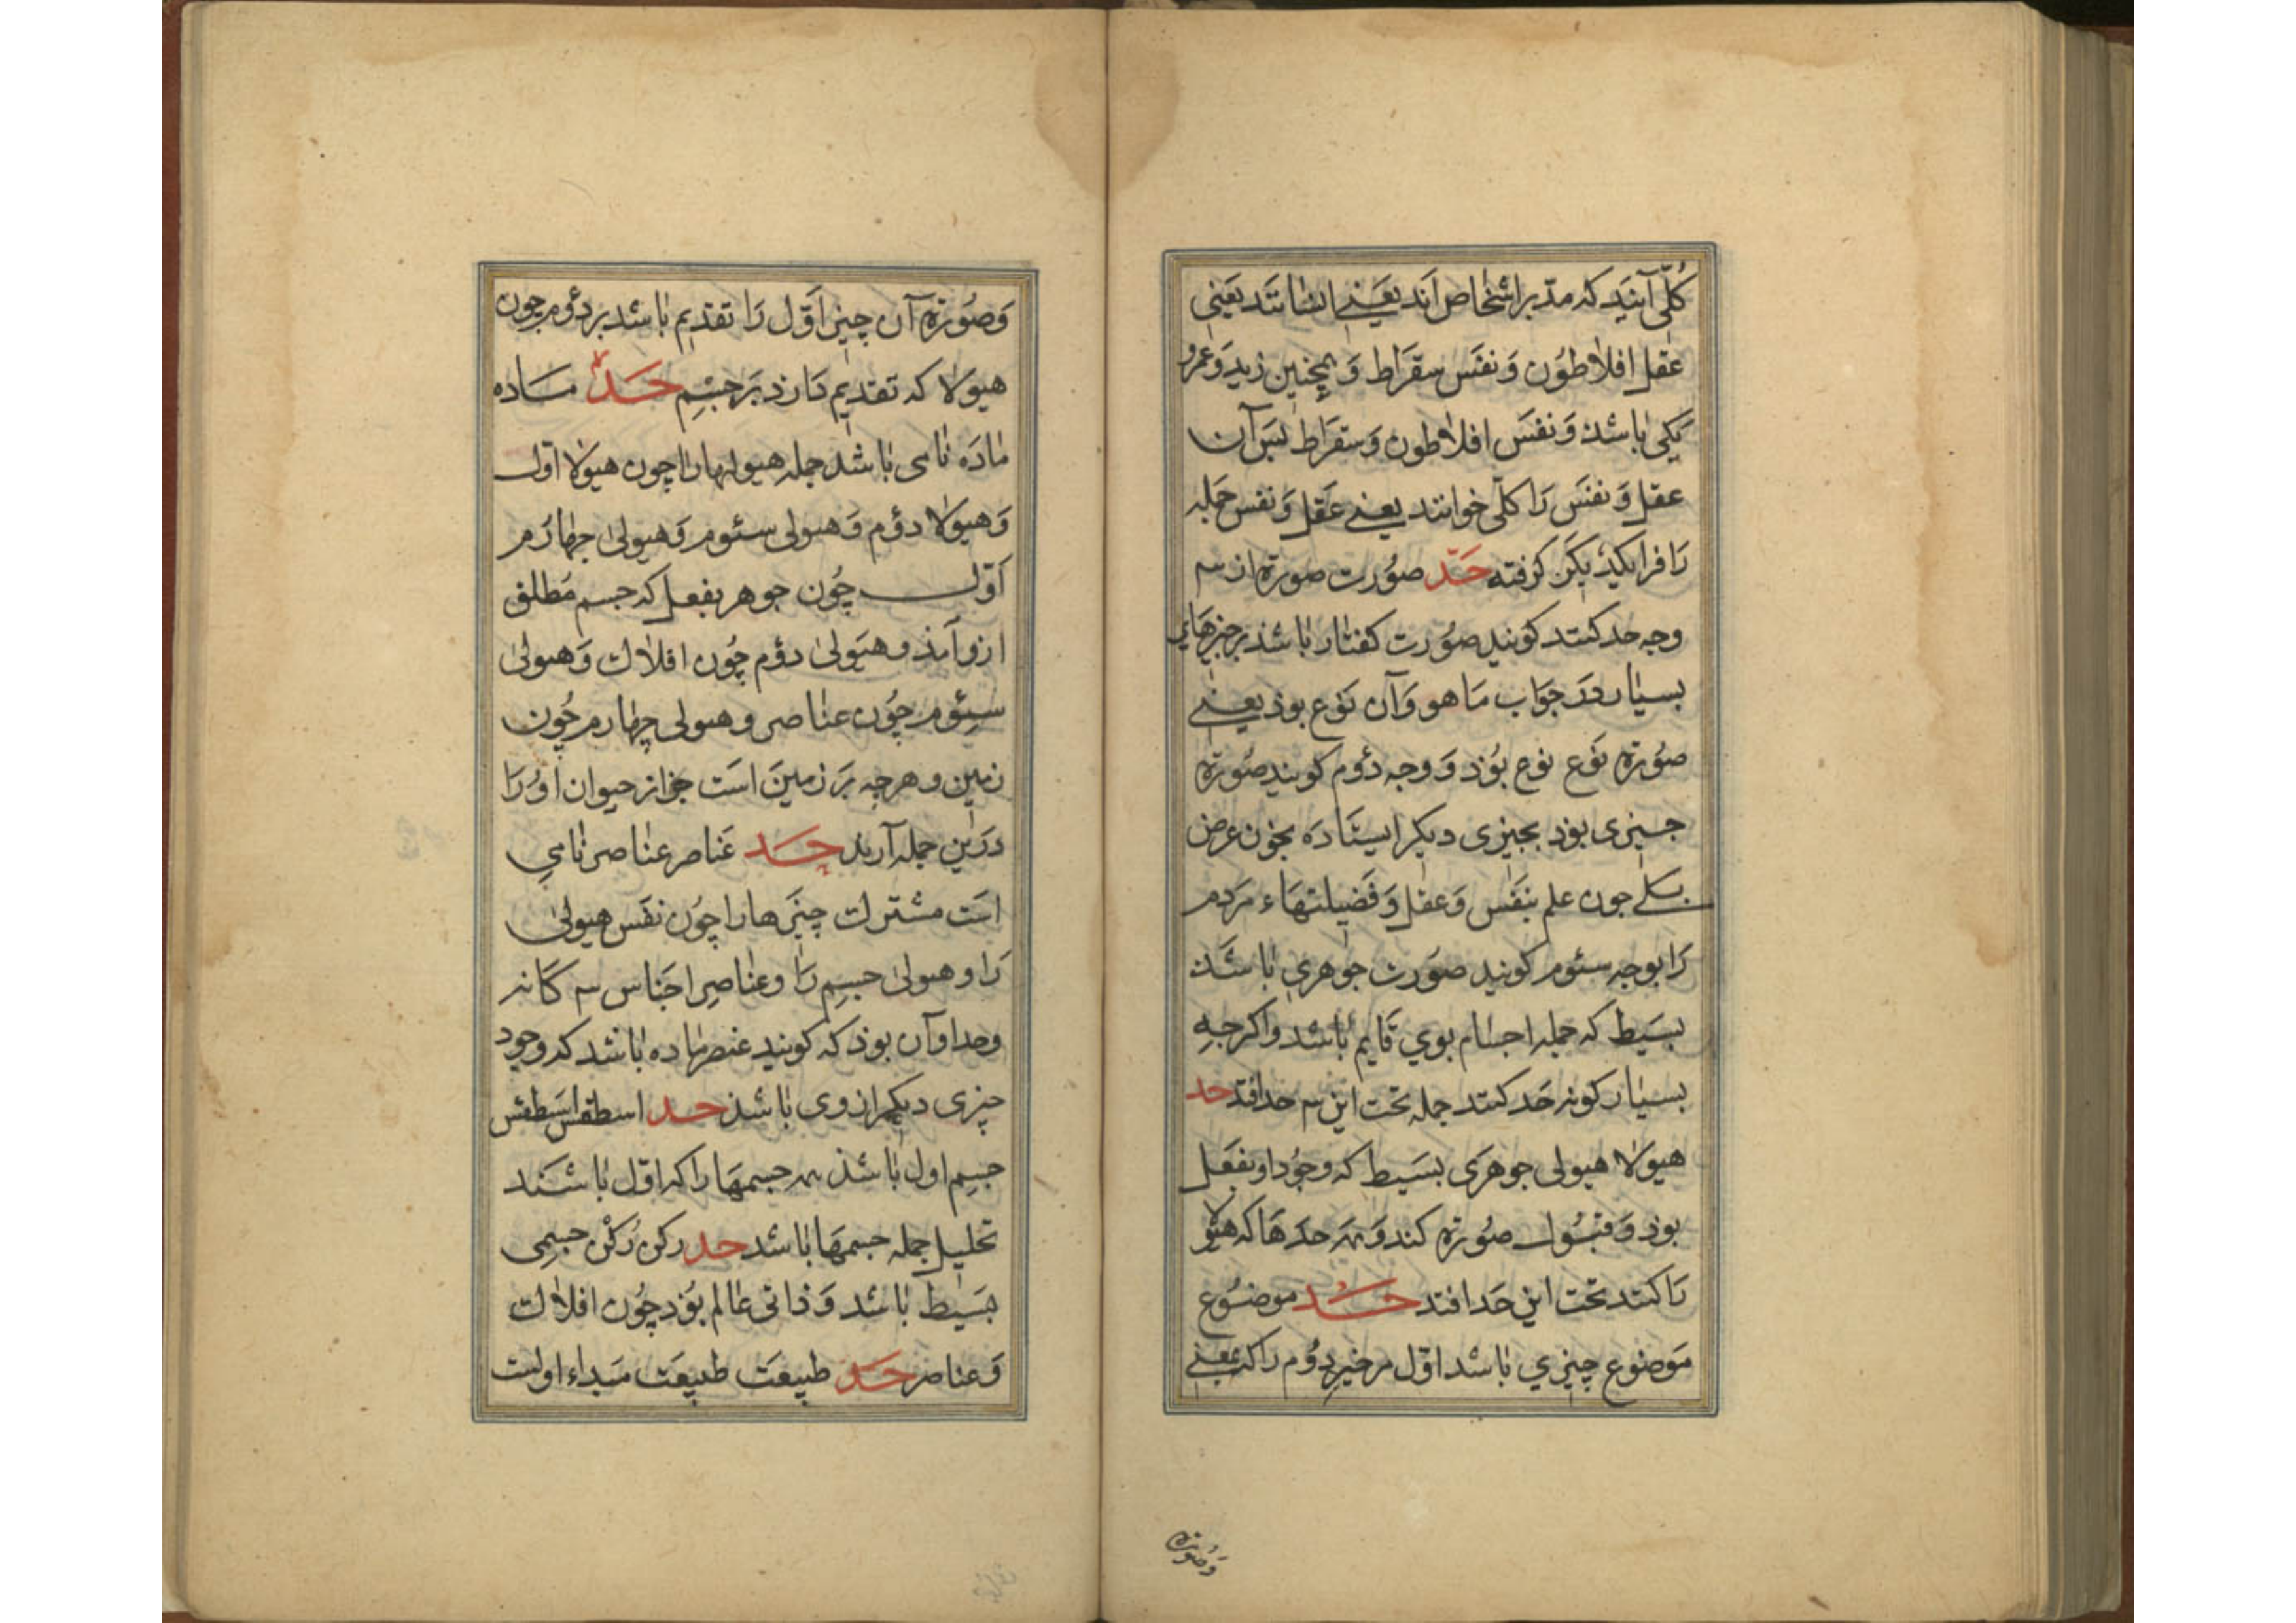 کلّی آنیَد که مدّبر اشخاص اَند یعَنے انسٰانند یعَنی
عقل افلاطوُن وَ نفَس سقرَاط وَ همچنین زید وَ عمرو
یکی بٰاشذ وَ نفسَ افلاطون وَ سقرَاط بسَ آن
عقل وَ نفسَ رَا کلّی خوانند یعنے عَقل وَ نفس جمله
رَا فرا یکدیکرَ کرفته حَدّ صوُرت صورة از سه
وجه حد کنند کویند صوُرت کفتار بٰاشذ بر چیزهَای
بسیٰار درَ جوَاب مَا هو وَ آن نوَع بوذ یعنے
صوُرة نوَع نوع بوُذ وَ وجه دوُم کویند صوُرة
جیزی بوذ بجیزی دیکر ایستٰادَه بجون عرض
کلے جون علم بنَفس وَ عقل وَ فَضیلتهَاء مَردم
رَا بوجه سئوم کویند صوَرت جوهری بٰاشَذ
بسَیط که جمله اجسٰام بوی قَایم بٰاشد و اکرجه
بسیٰار کونه حَد کنند جمله تحت این سه حد افتد حد
هیوَلا هیولی جوهرَی بسَیط که وجوُد او بفعَل
بوذ وَ قبوُل صوُرة کند وَ همه حدَهَا که هیوُلا
رَا کنند تحت این حَد افتد حَد موضوُع
موَضوع چیزي بٰاشد اوّل مر چیز دوُم را کب یعنے
وَصوُرة
وَ صوُرة آن چیز اوّل رَا تقدیم بٰاشد بر دوُم چون
هیوَلا که تقدیم دَارذ برَ جسِم حَد مَاده
مٰادَه نٰامی بٰاشد جمله هیولیها را چون هیوَلا اوّل
وَ هیوَلا دوُم وَ هیولی سئوم وَ هیولیٰ چهٰارَم
اَوّل چوُن جوهر بفعل که جسم مَطلق
ازو آمذ و هیَولیٰ دوُم چوُن افلاك وَ هیولیٰ
سئِوم چوُن عنٰاصر و هیولی چهٰارم چوُن
زمین و هر چه برَ زمینَ استَ جز از حیوان اوُ رَا
درَین جمله آرند حَد عَناصر عنٰاصر نٰامیِ
استَ مشترك چیزَها را چوُن نفَس هیولیٰ
رَا و هیولیٰ جسِم رَا و عنٰاصِر اجنَاس سه کَانه
و حد او آن بوذ که کویند عنصر مٰاده بٰاشد که وجود
چیزی دیکر از وی بٰاشذ حد اسطقس اسَطقس
جسِم اول بٰاشذ همه جسمهَا را که اوّل بٰاشَند
تحَلیل جمله جسمهَا بٰاشد حد رکن رُکن جسمِی
بسَیط بٰاشد وَ ذاتی عٰالم بوُذ چوُن افلاك
وَ عناصر حَد طبیعَت طبیعَت مَبداء اولست